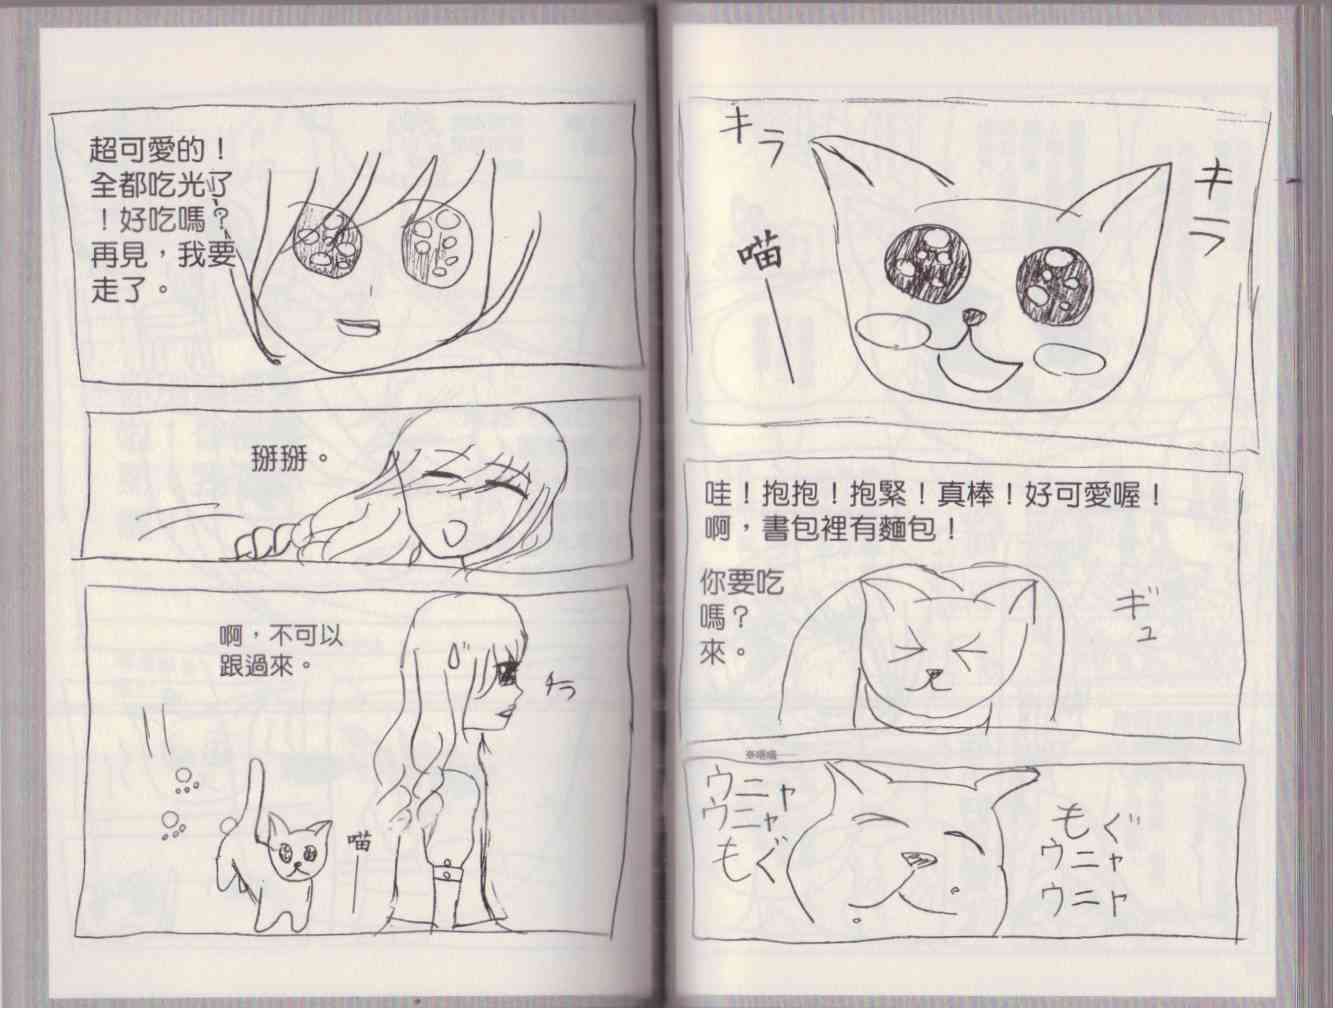 キラ
キラ
喵
哇！抱抱！抱緊！真棒！好可愛喔！
啊，書包裡有麵包！
你要吃
嗎？
來。
ギュ
ウニャ
ウニャ
もぐ
もぐ
ウニャ
ウニャ
超可愛的！
全都吃光了
！好吃嗎？
再見，我要
走了。
掰掰。
啊，不可以
跟過來。
チラ
喵